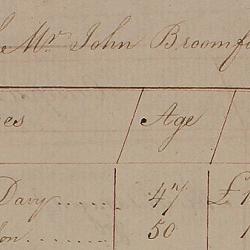 Mr John Broomf
es Age
Davy...... 47 £
on........ 50